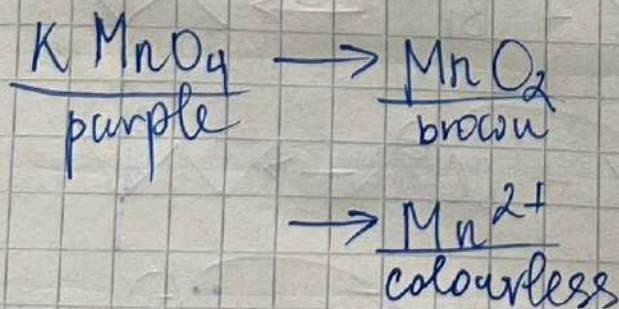 K MnO4 → MnO2
purple brown
→ Mn2+
colourless